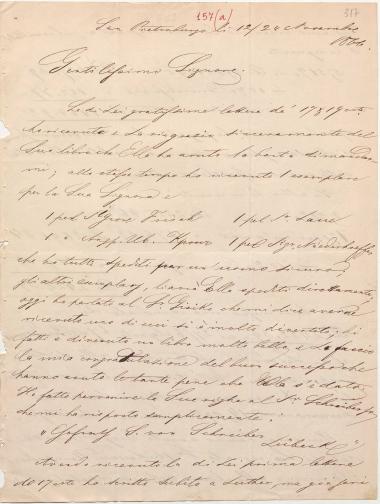 157(a)
317
San Pietroburgo li 12/24 Novembre
1866.
Gentilissimo Signore.
Le di Lei gratissime lettere de' 17 & 19
ho ricevuto e La ringrazio sinceramente del
Suo libro che Ella ha avuto la bontà di mandar
mi; allo stesso tempo ho ricevuto 1 esemplare
per la Sua Signora e
1 pel 1 pel
1 1 pel Sgr.
che ho tutti spediti per un' uomo sicuro;
gli altri esemplari, li avrà Ella spediti direttamente,
oggi ho parlato al Sr. che mi dice avere
ricevuto uno di cui si è molto divertito; di
fatti è divenuto un libro molto bello, e Le faccio
la mia congratulazione del buon successo che
hanno avuto le tante pene che Ella s'è data.
Ho fatto pervenire le Sue righe al Sr. Schreiber
che mi ha risposto semplicemente:
" S. von Schreiber
Lübeck "
Avendo ricevuto la di Lei prima lettera
de 17 ho scritto subito a ma già